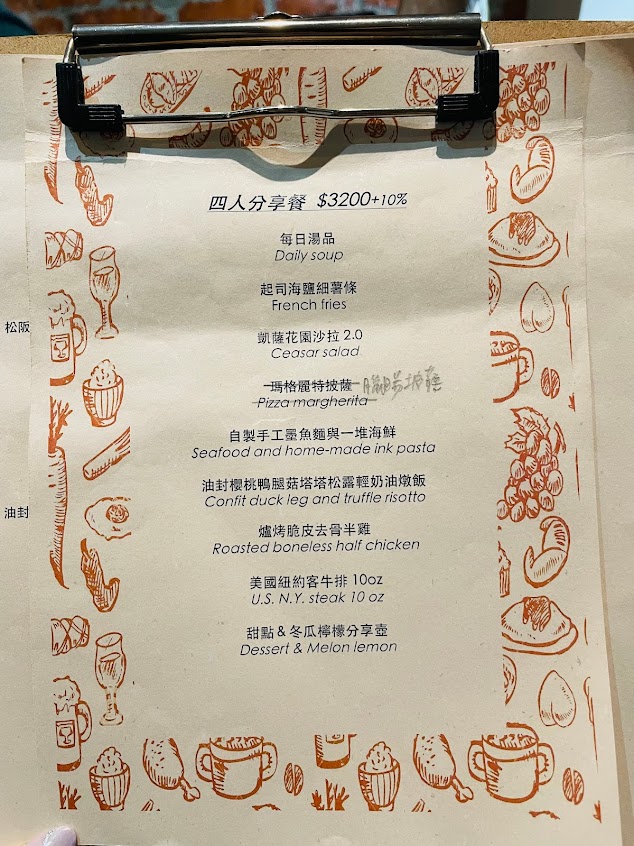 四人分享餐 $3200+10%
每日湯品
Daily soup
起司海鹽細薯條
French fries
松阪
凱薩花園沙拉 2.0
Ceasar salad
瑪格麗特披薩 臘腸披薩
Pizza margherita
自製手工墨魚麵與一堆海鮮
Seafood and home-made ink pasta
油封櫻桃鴨腿菇塔塔松露輕奶油燉飯
Confit duck leg and truffle risotto
油封
爐烤脆皮去骨半雞
Roasted boneless half chicken
美國紐約客牛排 10oz
U.S. N.Y. steak 10 oz
甜點＆冬瓜檸檬分享壺
Dessert & Melon lemon